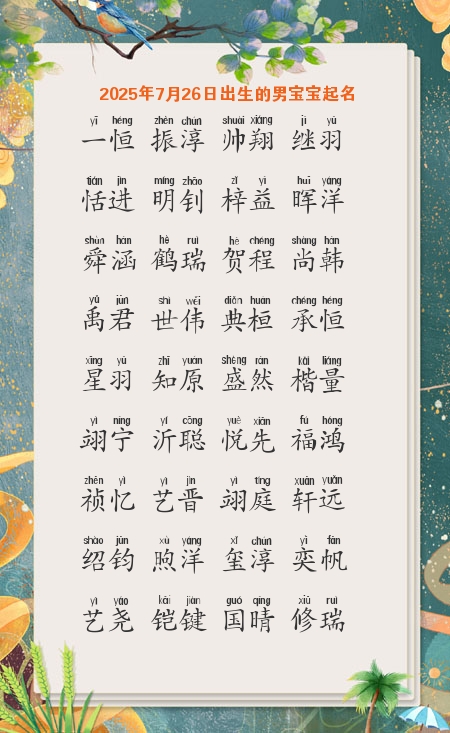 2025年7月26日出生的男宝宝起名
yī héng zhèn chún shuài xiáng jì yǔ
一恒 振淳 帅翔 继羽
tián jìn míng zhāo zǐ yì huī yáng
恬进 明钊 梓益 晖洋
shùn hán hè ruì hè chéng shàng hán
舜涵 鹤瑞 贺程 尚韩
yǔ jūn shì wěi diǎn huán chéng héng
禹君 世伟 典桓 承恒
xīng yǔ zhī yuán shèng rán kǎi liàng
星羽 知原 盛然 楷量
yì níng yí cōng yuè xiān fú hóng
翊宁 沂聪 悦先 福鸿
zhēn yì yì jìn yì tíng xuān yuǎn
祯忆 艺晋 翊庭 轩远
shào jūn xù yáng xǐ chún yì fān
绍钧 煦洋 玺淳 奕帆
yì yáo kǎi jiàn guó qíng xiū ruì
艺尧 铠键 国晴 修瑞